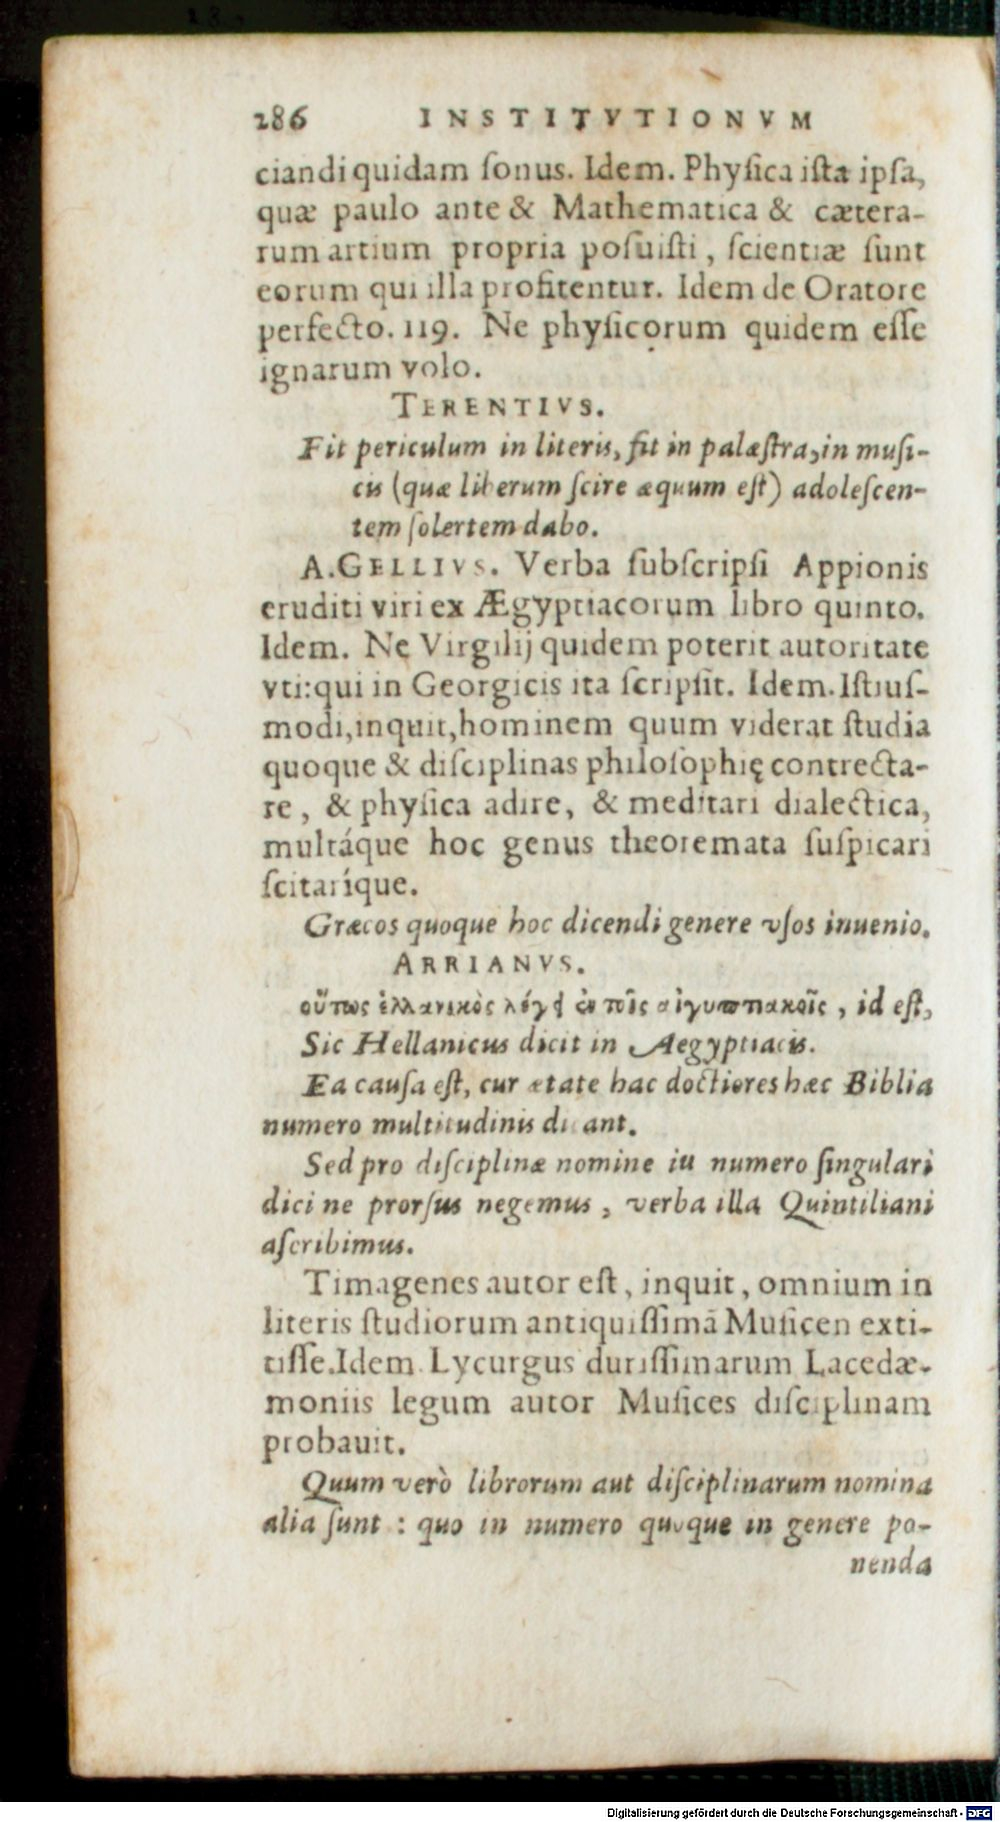 286 INSTITVTIONVM
ciandi quidam ſonus. Idem. Phyſica iſta ipſa,
quæ paulo ante & Mathematica & cætera-
rum artium propria poſuiſti, ſcientiæ ſunt
eorum qui illa profitentur. Idem de Oratore
perfecto. 119. Ne phyſicorum quidem eſſe
ignarum volo.
TERENTIVS.
Fit periculum in literis, fit in palæſtra, in muſi-
cis (quæ liberum ſcire æquum eſt) adoleſcen-
tem ſolertem dabo.
A. GELLIVS. Verba ſubſcripſi Appionis
eruditi viri ex Ægyptiacorum libro quinto.
Idem. Ne Virgilij quidem poterit autoritate
vti: qui in Georgicis ita ſcripſit. Idem. Iſtiuſ-
modi, inquit, hominem quum viderat ſtudia
quoque & diſciplinas philoſophię contrecta-
re, & phyſica adire, & meditari dialectica,
multáque hoc genus theoremata ſuſpicari
ſcitaríque.
Græcos quoque hoc dicendi genere vſos inuenio.
ARRIANVS.
οὕτως ἑλλανικὸς λέγει ἐν τοῖς αἰγυπτιακοῖς, id eſt,
Sic Hellanicus dicit in Aegyptiacis.
Ea cauſa eſt, cur ætate hac doctiores hæc Biblia
numero multitudinis dicant.
Sed pro diſciplinæ nomine in numero ſingulari
dici ne prorſus negemus, verba illa Quintiliani
aſcribimus.
Timagenes autor eſt, inquit, omnium in
literis ſtudiorum antiquiſſimā Muſicen exti-
tiſſe. Idem. Lycurgus duriſſimarum Lacedæ-
moniis legum autor Muſices diſciplinam
probauit.
Quum verò librorum aut diſciplinarum nomina
alia ſunt: quo in numero quoque in genere po-
nenda
Digitalisierung gefördert durch die Deutsche Forschungsgemeinschaft - DFG